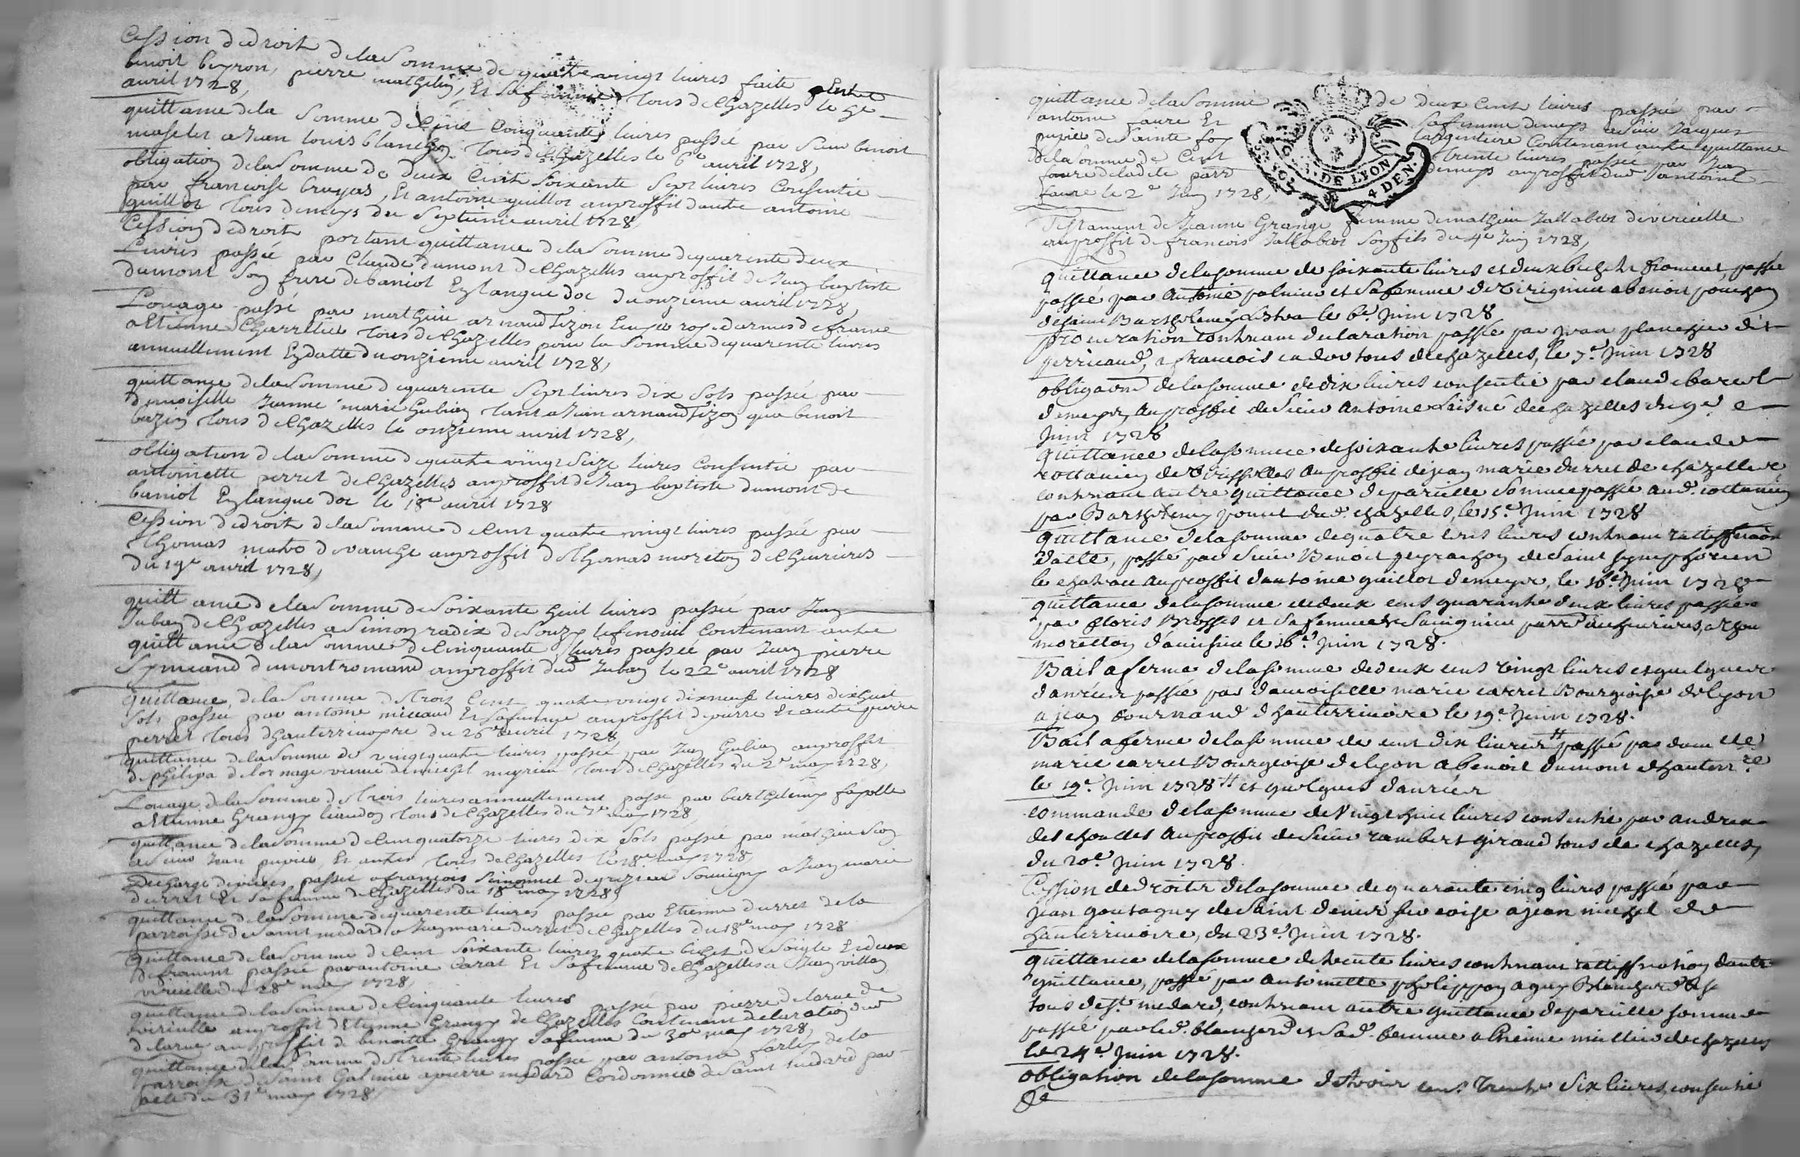 Cession de droit de la somme de quatre vingt livres faite entre
benoit beyron, pierre mathelin, et sa femme tous de Chazelles le
avril 1728,
quittance de la somme de Cent Cinquante livres passé par sieur benoit
a Jean louis blanchon tous de Chazelles le 6e avril 1728,
obligation de la somme de deux Cent soixante sept livres Consentie
par francoise et antoine guillot au proffit d'autre antoine
guillot tous de meys du septieme avril 1728,
Cession de droit portant quittance de la somme de quarente deux
Livres passée par Claude dumont de Chazelles au proffit de Jean baptiste
dumont son frere de baniol en languedoc du onzieme avril 1728,
Louage passé par mathieu arnaud Tizon
a Etienne Charretie tous de Chazelles pour la somme de quarente livres
annuellement en datte du onzieme avril 1728,
quittance de la somme de quarente sept livres dix sols passée par
demoiselle Jeanne marie Gubian tant a Jean arnaud Tizon que benoit
bazin tous de Chazelles le onzieme avril 1728,
obligation de la somme de quatre vingt seize livres Consentie par
antoinette perret de Chazelles au proffit de Jean baptiste dumont de
baniol en languedoc le 18e avril 1728
Cession de droit de la somme de Cent quatre vingt livres passée par
Thomas de vauche au proffit de Thomas moreton de Chevrieres
du 19e avril 1728,
quittance de la somme de soixante huit livres passée par Jean
Juban de Chazelles a Simon radix de Souzy Contenant autre
quittance de la somme de Cinquante livres passée par Jean pierre
Symeand de montromand au proffit dud Juban le 22e avril 1728
quittance, de la somme de trois Cent quatre vingt dix neuf livres dix huit
sols passée par antoine micaud et sa femme au proffit de pierre et autre pierre
perret tous d'hauterivoyre du 25e avril 1728
quittance de la somme de vingt quatre livres passée par Jean Gubian au proffit
de philipa delormage veuve de michel meyrieu tous de Chazelles du 2e may 1728,
Louage de la somme de trois livres annuellement passé par barthelemy fayolle
a Etienne Grangy tous de Chazelles du 7e may 1728
quittance de la somme de Cinquatorze livres dix sols passée par mathieu
Jean pupier et autres tous de Chazelles le 18e may 1728,
Decharge de pieces, passée a francois simonnet de grezieu Souvigny a Jean marie
durret et sa femme de Chazelles du 18e may 1728,
quittance de la somme de quarente livres passée par Etienne durret de la
parroisse de saint medard a Jean marie durret de Chazelles du 18e may 1728
quittance de la somme de Cent soixante livres quatre bichet de seigle et deux
de froment passée par antoine et sa femme de Chazelles a Jean villon
viricelle du 28e may 1728,
quittance de la somme de Cinquante livres passée par pierre delarue de
viricelle au proffit d'Etienne Grangy de Chazelles Contenant declaration dud
delarue au proffit de benoitte Grangy sa femme du 30e may 1728,
quittance de la somme de trente livres passée par antoine de la
parroisse de saint Galmier a pierre medard Cordonnier de saint medard par
acte du 31e may 1728,
quittance de la somme de deux Cent livres passée par
antoine faure et sa femme de meys a sieur Jacques
pupier de sainte foy l'argentiere Contenant autre quittance
de la somme de Cent trente livres, passée par Jean
faure de ladite parr de meys au proffit dud antoine
faure le 2e Juin 1728,
G. DE LYON
4 DEN.
Testament de Jeanne Grange femme de mathieu Jallabert de viricelle
au proffit de francois Jallabert son fils du 4e Juin 1728,
quittance de la somme de soixante livres et deux bichets froment, passée
passée par antoine palmier et sa femme de virigneu a benoit ponchon
de saint Barthelemy lestra le 6e Juin 1728
procuration contenant declaration passée par jean planchet dit
perricaud, a francois cador tous de chazelles, le 7e Juin 1728
obligation de la somme de dix livres consentie par claude barcel
de meys, au proffit de sieur antoine Laisné de chazelles du 9e
Juin 1728
Quittance de la somme de soixante livres passée par claude
cottancin de viricelles au proffit de jean marie durret de chazelles
contenant autre quittance de pareille somme passée aud. cottancin
par Barthelemy poncet dud chazelles, le 15e Juin 1728
Quittance de la somme de quatre cens livres contenant rattiffication
d'icelle, passée par sieur Benoit peyrachon de saint symphorien
le chateau au proffit d'antoine guillot de meys, le 16e Juin 1728
quittance de la somme de deux cens quarante deux livres passée
par floris Brosses et sa femme de savigneu parr de chevrieres, a jean
moretton d'aveisieu le 16e Juin 1728.
Bail a ferme de la somme de deux cens vingt livres et quelques
danrées passée par damoiselle marie carret Bourgeoise de lyon
a jean dournand d'hauterivoire le 19e Juin 1728.
Bail a ferme de la somme de cent dix livres # passée par dam elle
marie carret Bourgeoise de lyon a benoit dumont d'hauteriv re
le 19e Juin 1728 # et quelques danrées
commande de la somme de vingt huit livres consentie par andrée
deschaulles au proffit de sieur rambert giraud tous de chazelles
du 20e Juin 1728.
Cession de droits de la somme de quarante cinq livres passée par
jean goutagny de saint denis sur coise a jean michel de
hauterivoire, du 23e Juin 1728.
quittance de la somme de trente livres contenant rattiffication d'autre
quittance, passée par antoinette philippon a guy Blanchard
tous de st. medard, contenant autre quittance de pareille somme
passée par led. blanchard et sad. femme a etienne millier de chazelles
le 24e Juin 1728.
obligation de la somme d'avoir cens trente six livres, consentie